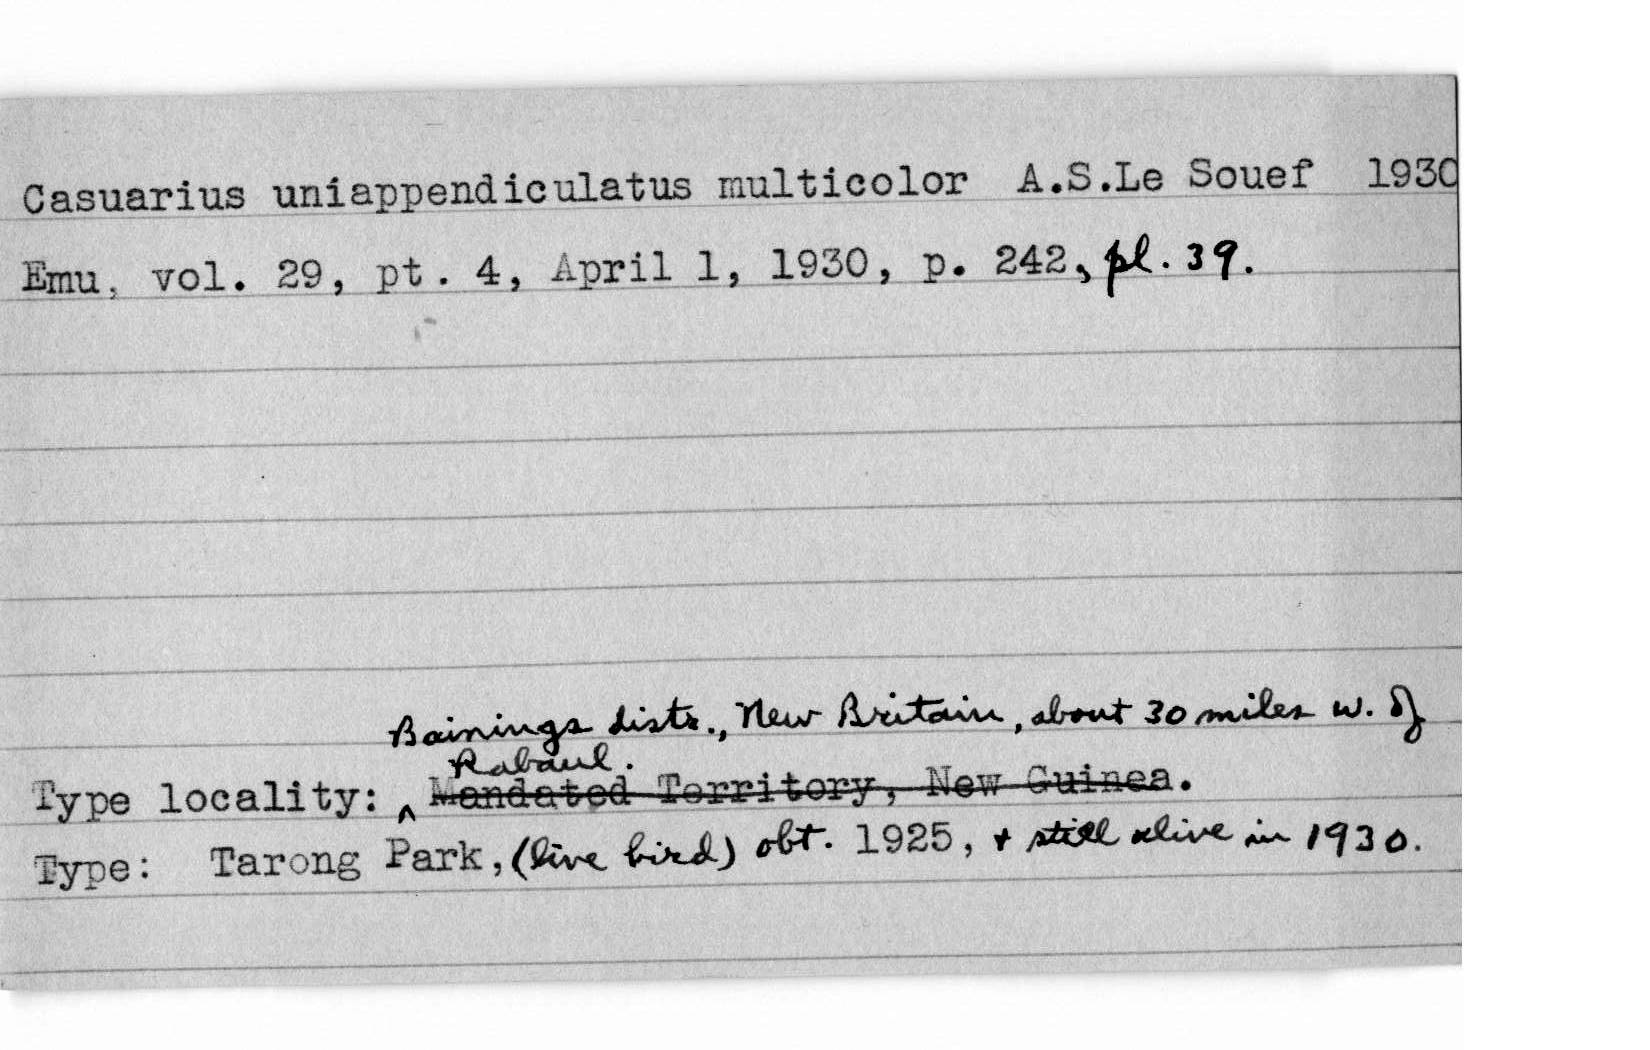 Casuarius uniappendiculatus multicolor A.S.Le Souef 1930
Emu, vol. 29, pt. 4, April 1, 1930, p. 242, pl. 39.
Bainings distr., New Britain, about 30 miles w. of
Rabaul.
Type locality: ^ Mandated Territory, New Guinea.
Type: Tarong Park, (live bird) obt. 1925, + still alive in 1930.